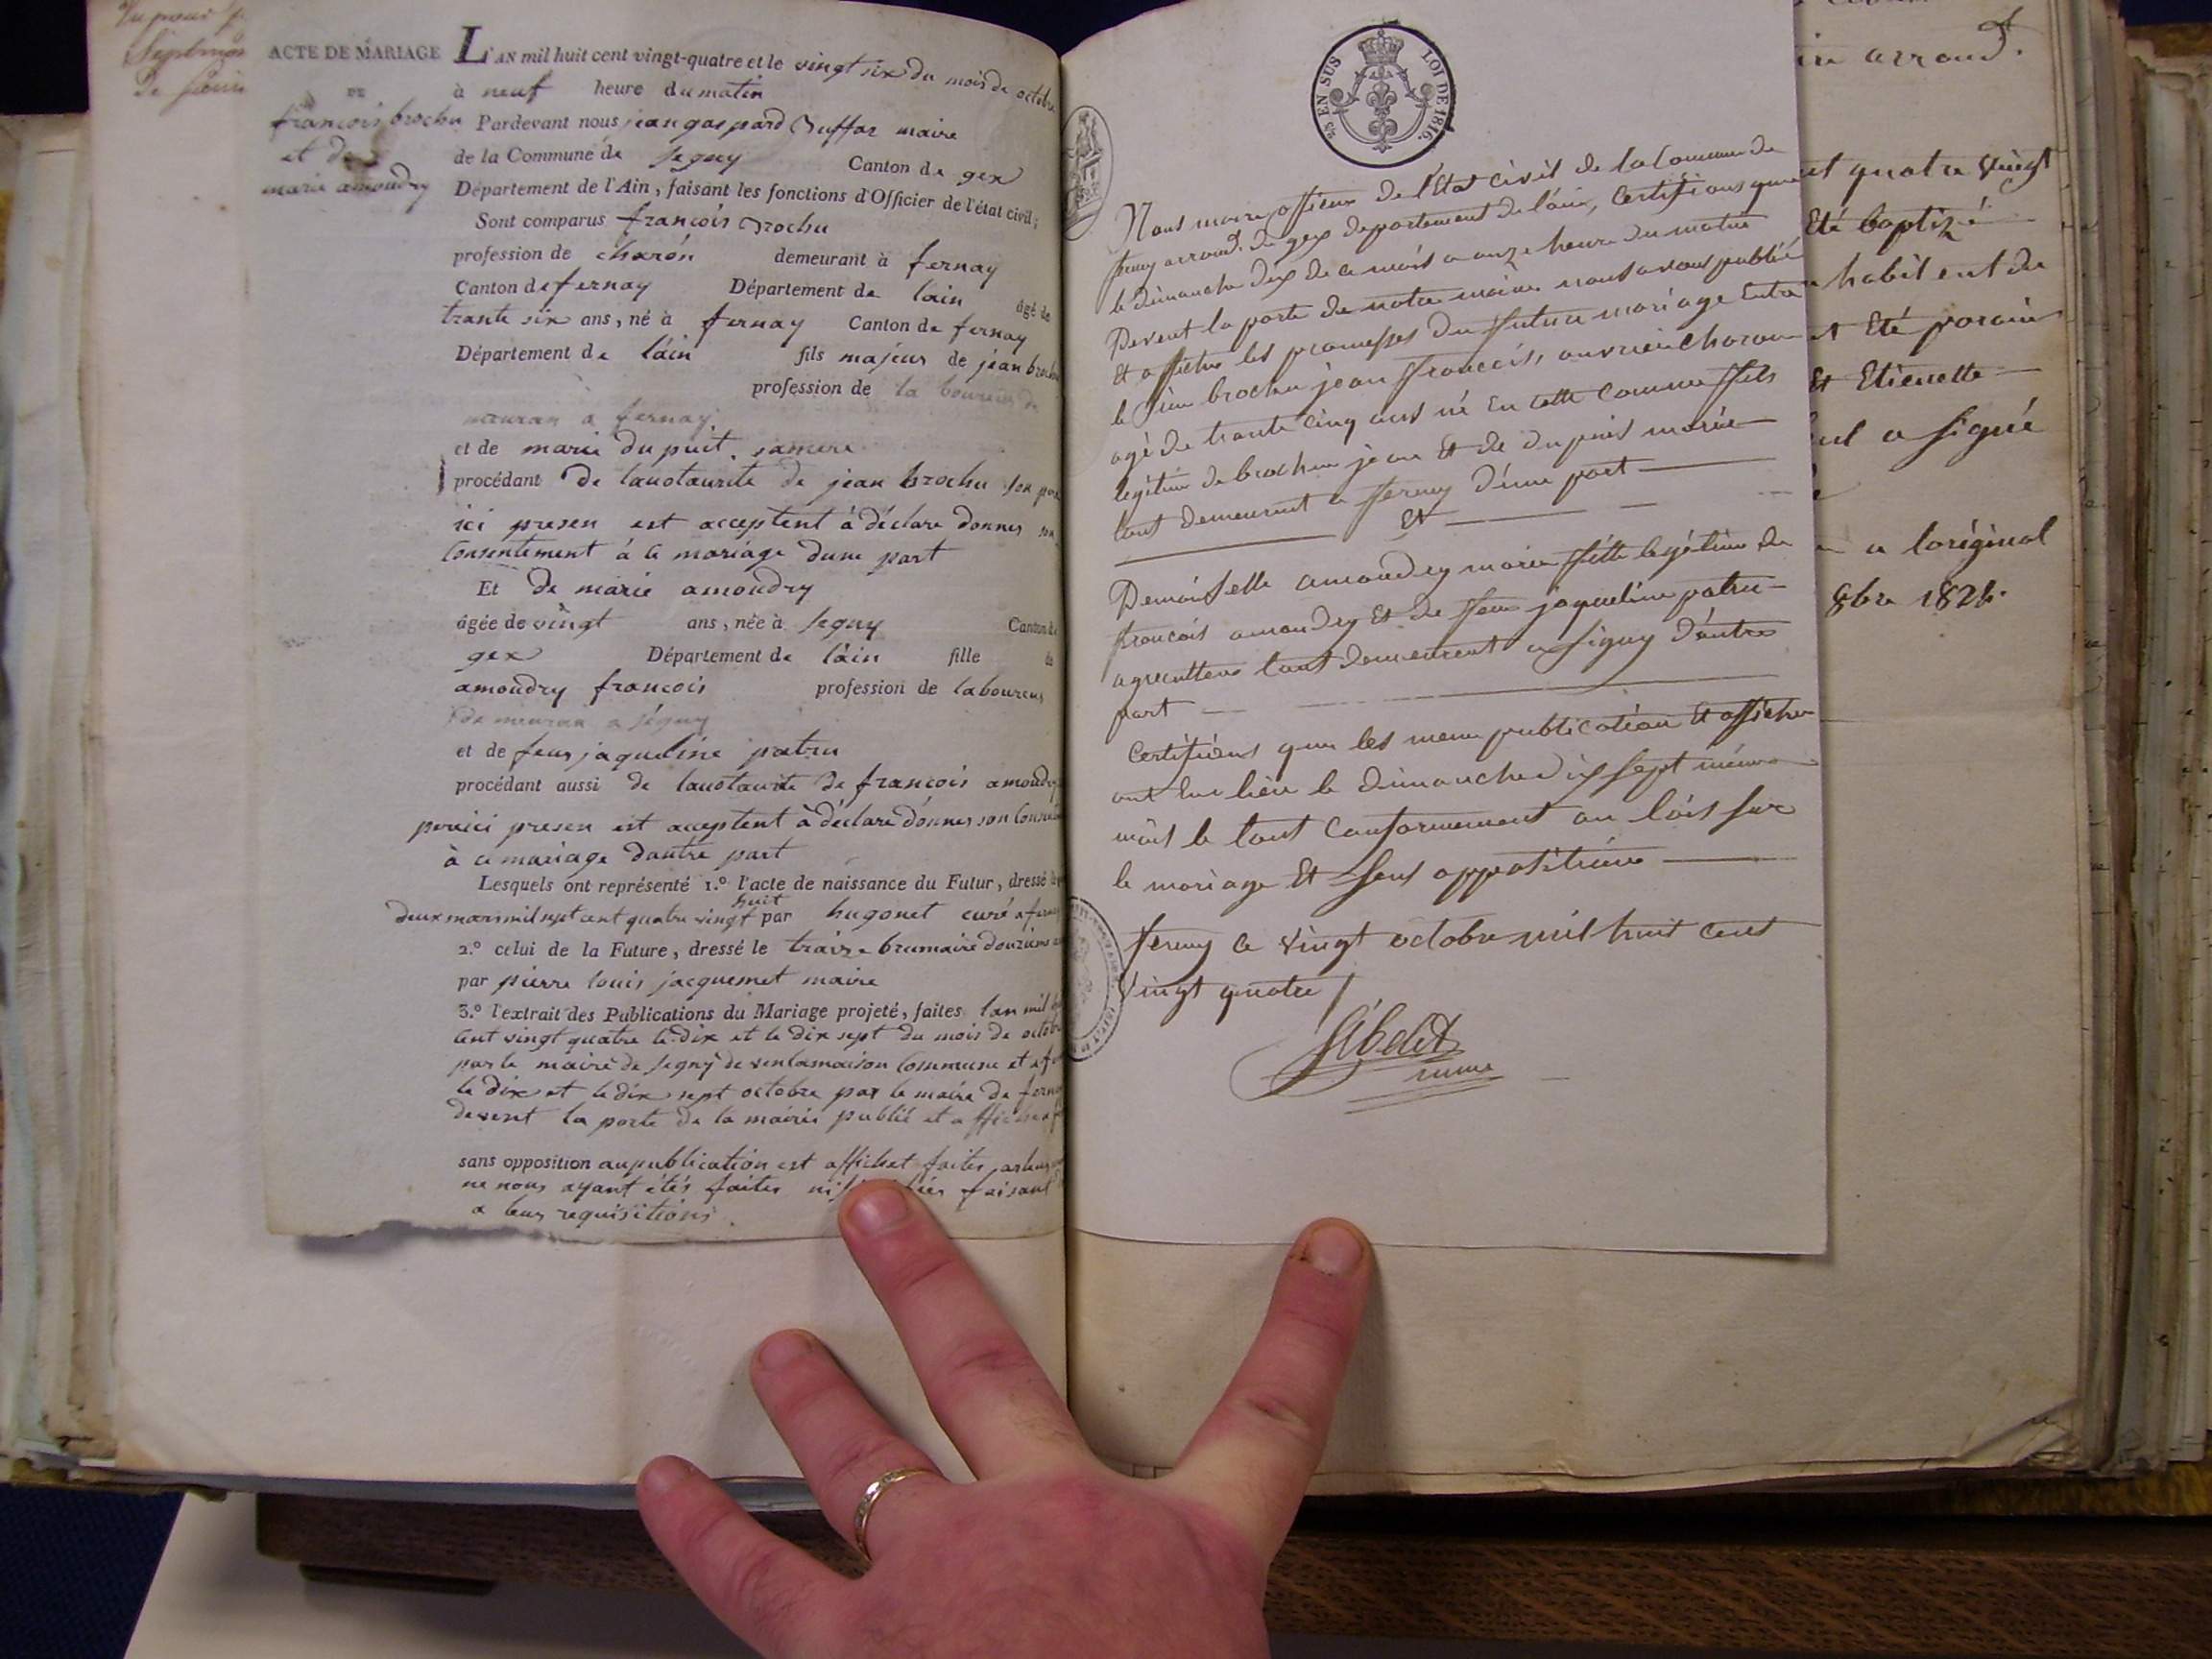 Vu pour
ACTE DE MARIAGE
DE
francois brochu
et de
marie amoudry
L'AN mil huit cent vingt-quatre et le vingt six du mois de octobre
à neuf heure du matin
Pardevant nous jean gaspard maire
de la Commune de segny Canton de gex
Département de l'Ain, faisant les fonctions d'Officier de l'état civil;
Sont comparus francois brochu
profession de charón demeurant à fernay
Canton de fernay Département de lain âgé de
trante six ans, né à fernay Canton de fernay
Département de láin fils majeur de jean brochu
profession de la boureur de
meuran a fernay
et de marie du puit. samere
procédant de lauotaurite de jean brochu son pere
ici presen est acceptent à déclare donner son
Consentement à ce mariage dune part
Et de marie amoudry
âgée de vingt ans, née à segny Canton de
gex Département de láin fille de
amoudry francois profession de laboureur
de meuran a segny
et de feue jaqueline patru
procédant aussi de lauotaurite de francois amoudry
pere ici presen est acceptent à déclare donner son Consen
à ce mariage dautre part
Lesquels ont représenté 1.º l'acte de naissance du Futur, dressé le
deux mars mil sept cent quatre vingt huit par hugonet curé a fernay
2.º celui de la Future, dressé le traize brumaire douzieme
par pierre louis jacquemet maire
3.º l'extrait des Publications du Mariage projeté, faites lan mil
cent vingt quatre le dix et le dix sept du mois de octobre
par le maire de segny de ven la maison Commune et a
le dix et le dix sept octobre par le maire de fernay
devent la porte de la mairie publié et affiche
sans opposition au publication est affichet faites
ne nous ayant étés faites faisant
a leur requisitions.
25 EN SUS LOI DE 1816.
Nous maire officier de l'Etat civil de la Commune de
ferney arrond. de gex departement de láin, Certifions que
le dimanche dix de ce mois a onze heure du matin
Devent la porte de notre mairie nous avous publié
Et affiche les promesses du futur mariage Entre
le Sieur brochu jean francois, ouvrier charon
agé de trante cinq ans né En cette Commune fils
legitime de brochu jean Et de dupuis marie
tous demeurent a ferney d'une part
Et
Demoiselle amoudry marie fille legitime de
francois amoudry Et de feue jaqueline patru
agriculteur tous demeurent a Signy d'autre
part
Certifions que les meme publication Et affiche
ont Eu lieu le dimanche dix sept même
mois le tout Conformement au lois sur
le mariage Et sens opposition
ferney ce vingt octobre mil huit cent
vingt quatre
maire
arrond.
et quatre vingt
Eté baptizé
habitent de
Eté parain
Et Etienette
a signé
a loriginal
8bre 1824.